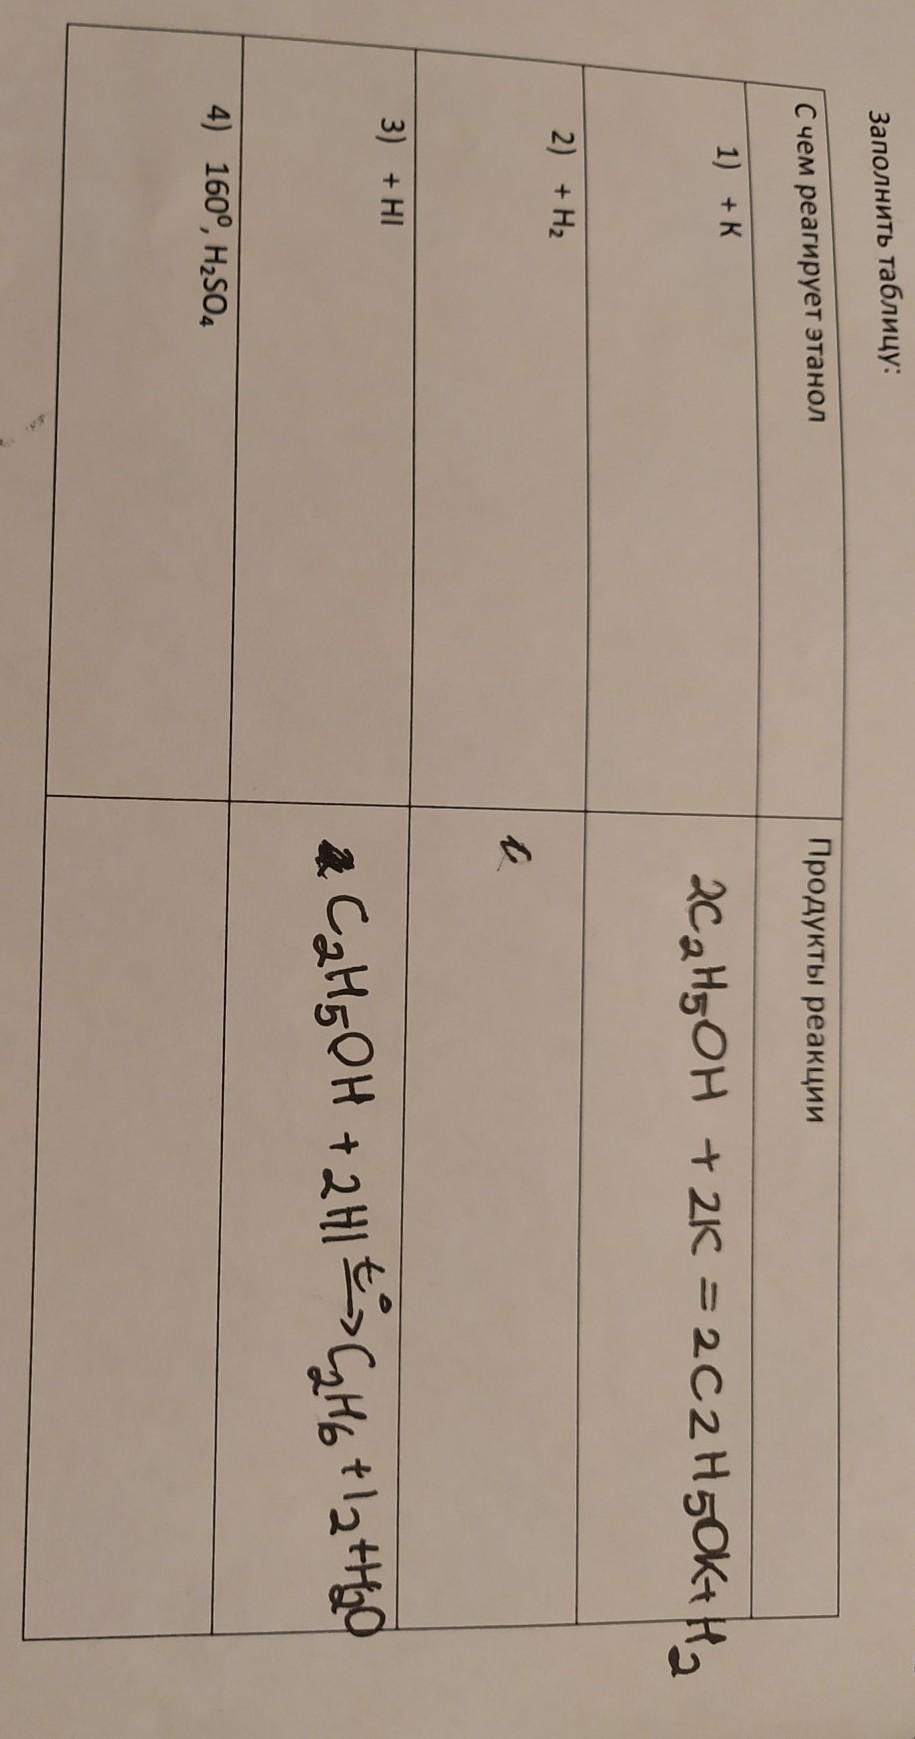 Заполнить таблицу:
С чем реагирует этанол
Продукты реакции
1) + K
2C₂H₅OH + 2K = 2C2H5OK + H₂
2) + H₂
3) + HI
C₂H₅OH + 2HI t°→ C₂H₆ + I₂ + H₂O
4) 160⁰, H₂SO₄